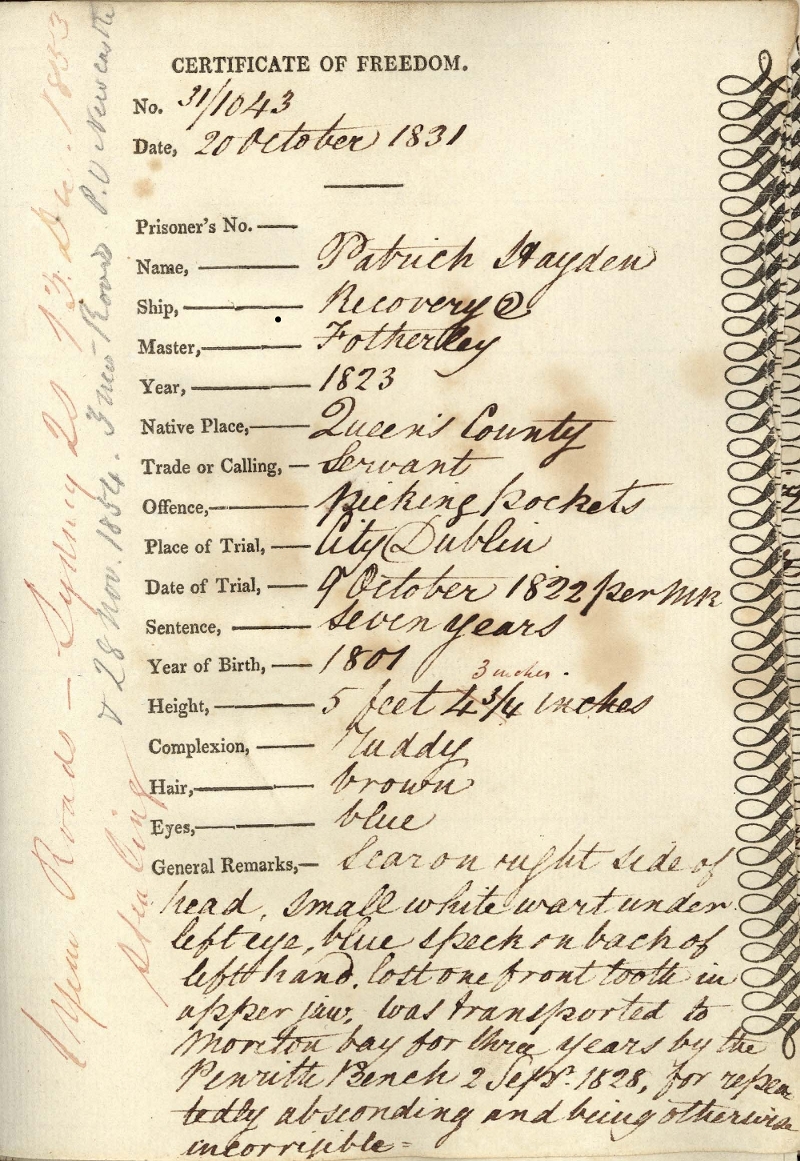 CERTIFICATE OF FREEDOM.
No. 31/1043
Date, 20 October 1831
Prisoner's No. —
Name, — Patrick Hayden
Ship, — Recovery 2
Master, — Fotherley
Year, — 1823
Native Place, — Queen's County
Trade or Calling, — Servant
Offence, — picking pockets
Place of Trial, — City Dublin
Date of Trial, — 9 October 1822 per MR
Sentence, — seven years
Year of Birth, — 1801
3 inches.
Height, — 5 feet 4 3/4 inches
Complexion, — Ruddy
Hair, — brown
Eyes, — blue
General Remarks, — Scar on right side of
head, small white wart under
left eye, blue speck on back of
left hand, lost one front tooth in
upper jaw, was transported to
Moreton bay for three years by the
Penrith Bench 2 Sepr. 1828, for repea
tedly absconding and being otherwise
incorrigible =
1 year Roads — Sydney 2S 13 Dec. 1853
stealing
& 28 Nov. 1854. 3 mos P.O Newcastle